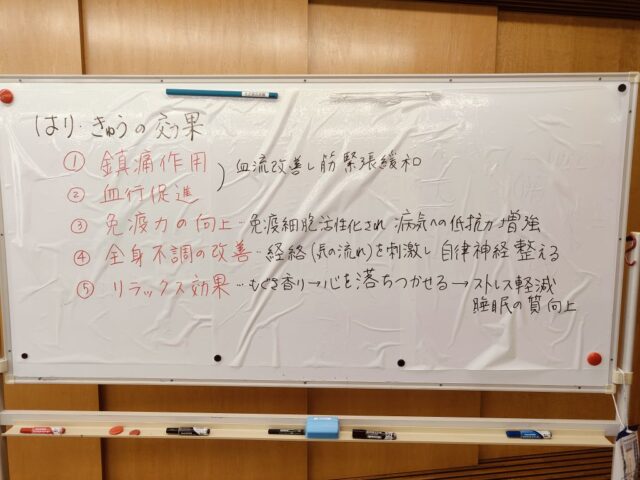 はり・きゅうの効果
① 鎮痛作用
② 血行促進
) 血流改善し筋緊張緩和
③ 免疫力の向上…免疫細胞活性化され 病気への低抗力増強
④ 全身不調の改善…経絡(気の流れ)を刺激し 自律神経 整える
⑤ リラックス効果…もぐさ香り→心を落ちつかせる→ストレス軽減
睡眠の質向上